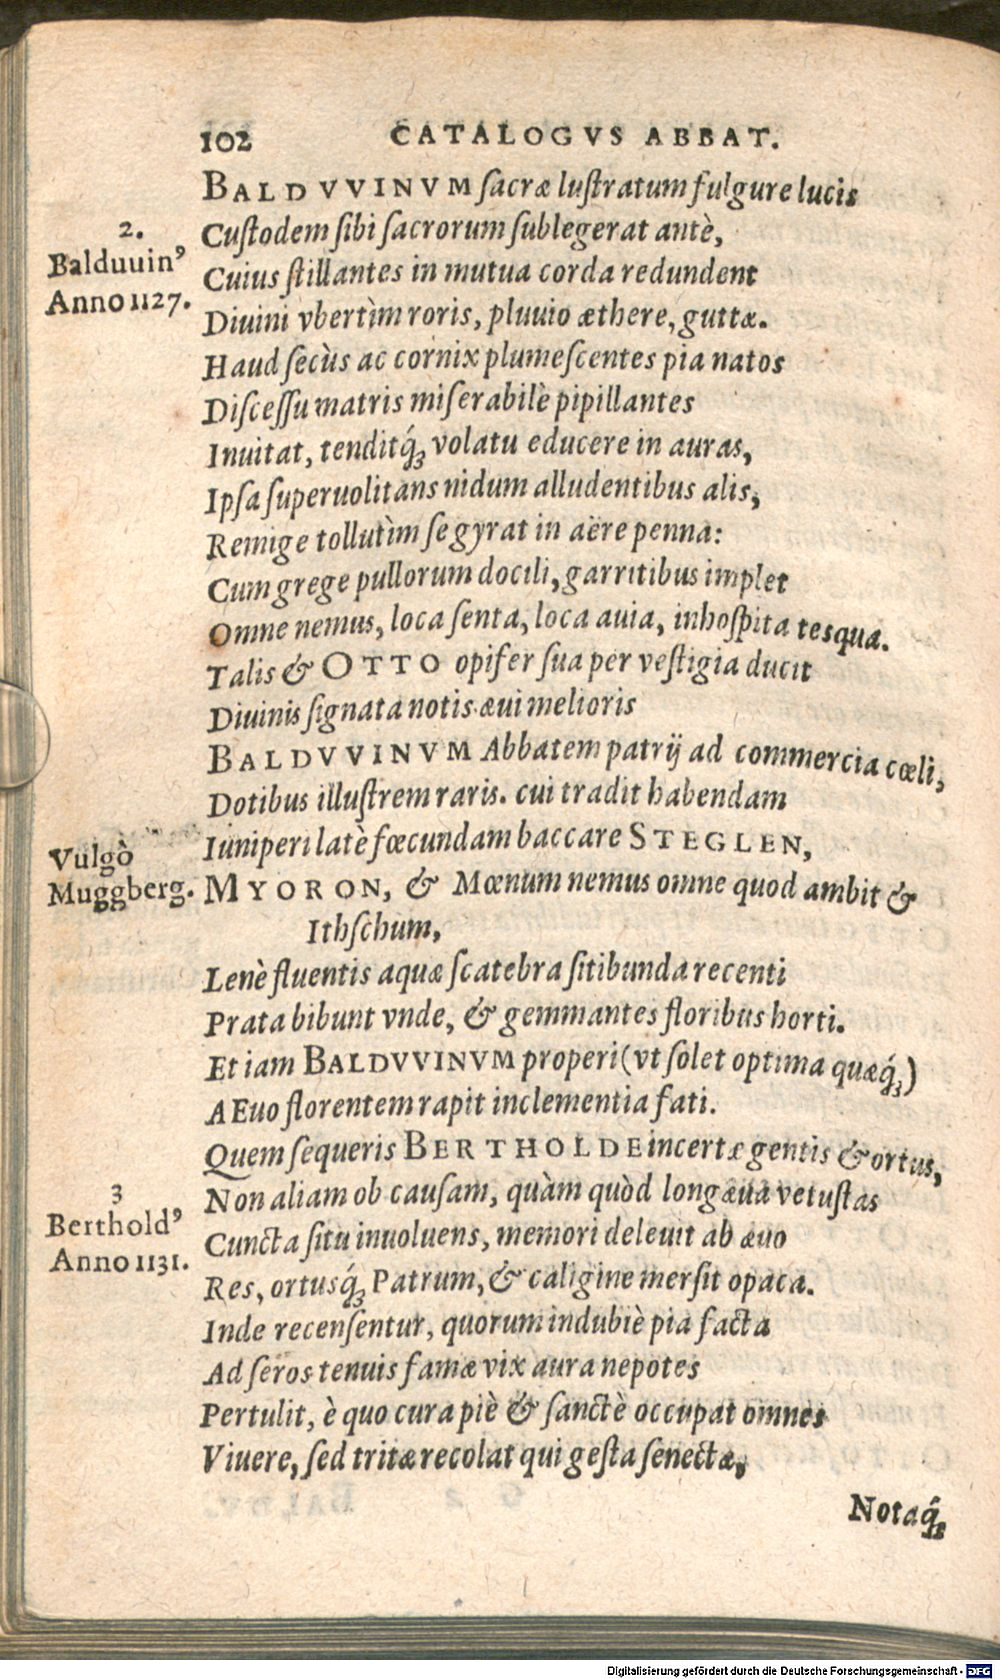 102 CATALOGVS ABBAT.
BALDVVINVM sacræ lustratum fulgure lucis
2.
Custodem sibi sacrorum sublegerat antè,
Balduuinꝰ
Cuius stillantes in mutua corda redundent
Anno 1127.
Diuini vbertìm roris, pluuio æthere, guttæ.
Haud secùs ac cornix plumescentes pia natos
Discessu matris miserabilè pipillantes
Inuitat, tenditq́ꝫ volatu educere in auras,
Ipsa superuolitans nidum alludentibus alis,
Remige tollutìm se gyrat in aëre penna:
Cum grege pullorum docili, garritibus implet
Omne nemus, loca senta, loca auia, inhospita tesqua.
Talis & OTTO opifer sua per vestigia ducit
Diuinis signata notis æui melioris
BALDVVINVM Abbatem patrij ad commercia cœli,
Dotibus illustrem raris. cui tradit habendam
Iuniperi latè fœcundam baccare STEGLEN,
Vulgò
Muggberg.
MYORON, & Mœnum nemus omne quod ambit &
Ithschum,
Lenè fluentis aquæ scatebra sitibunda recenti
Prata bibunt vnde, & gemmantes floribus horti.
Et iam BALDVVINVM properi (vt solet optima quæq́ꝫ)
AEuo florentem rapit inclementia fati.
Quem sequeris BERTHOLDE incertæ gentis & ortus,
3
Non aliam ob causam, quàm quòd longæua vetustas
Bertholdꝰ
Cuncta situ inuoluens, memori deleuit ab æuo
Anno 1131.
Res, ortusq́ꝫ Patrum, & caligine mersit opaca.
Inde recensentur, quorum indubiè pia facta
Ad seros tenuis famæ vix aura nepotes
Pertulit, è quo cura piè & sanctè occupat omnes
Viuere, sed tritæ recolat qui gesta senectæ,
Notaq́ꝫ
Digitalisierung gefördert durch die Deutsche Forschungsgemeinschaft - DFG